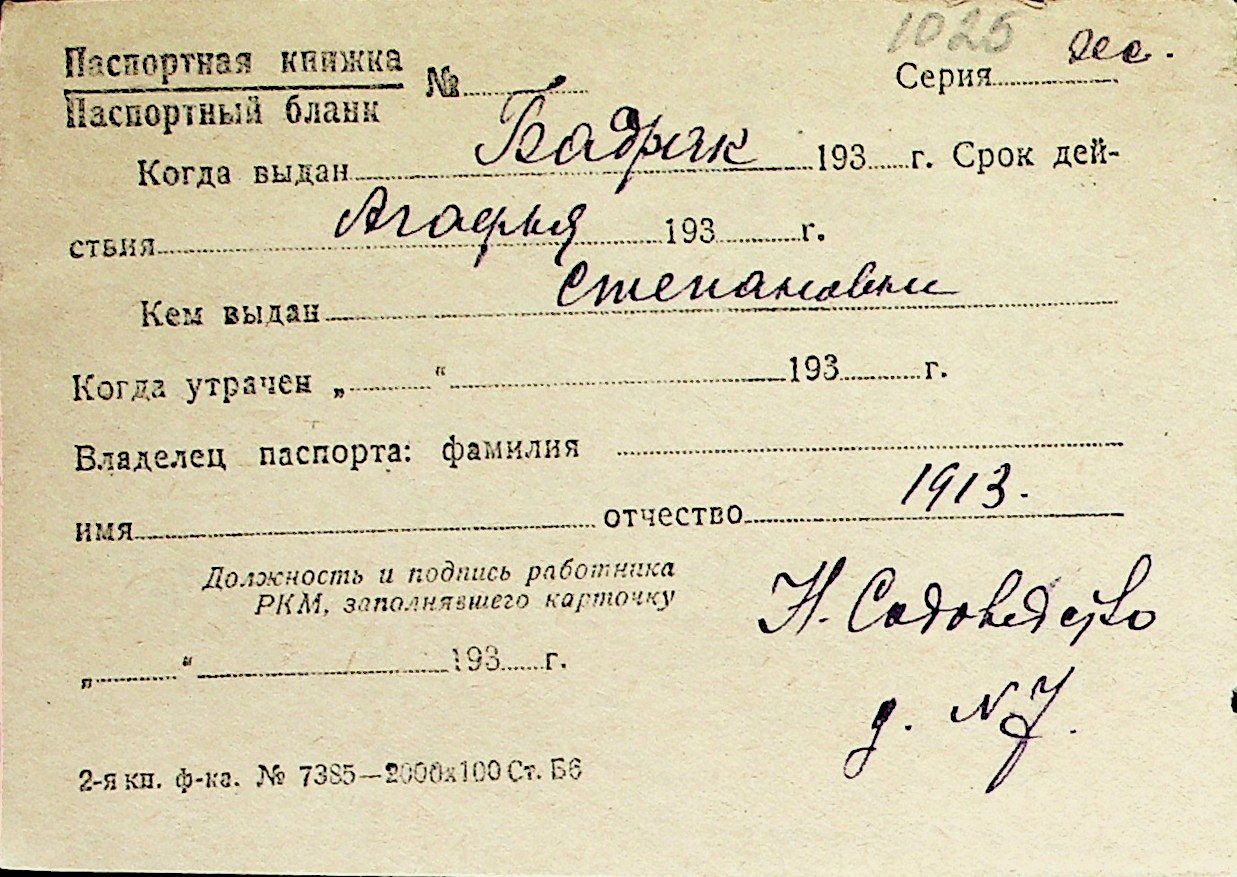 1025 дес.
Паспортная книжка
Паспортный бланк № Серия
Бадряк
Когда выдан 193 г. Срок дей-
Агафья
ствия 193 г.
Степановна
Кем выдан
Когда утрачен „ “ 193 г.
Владелец паспорта: фамилия
1913.
имя отчество
Должность и подпись работника
РКМ, заполнявшего карточку
Н. Садоводство
„ “ 193 г.
д. N 7.
2-я кн. ф-ка. № 7385—2000х100 Ст. Б6